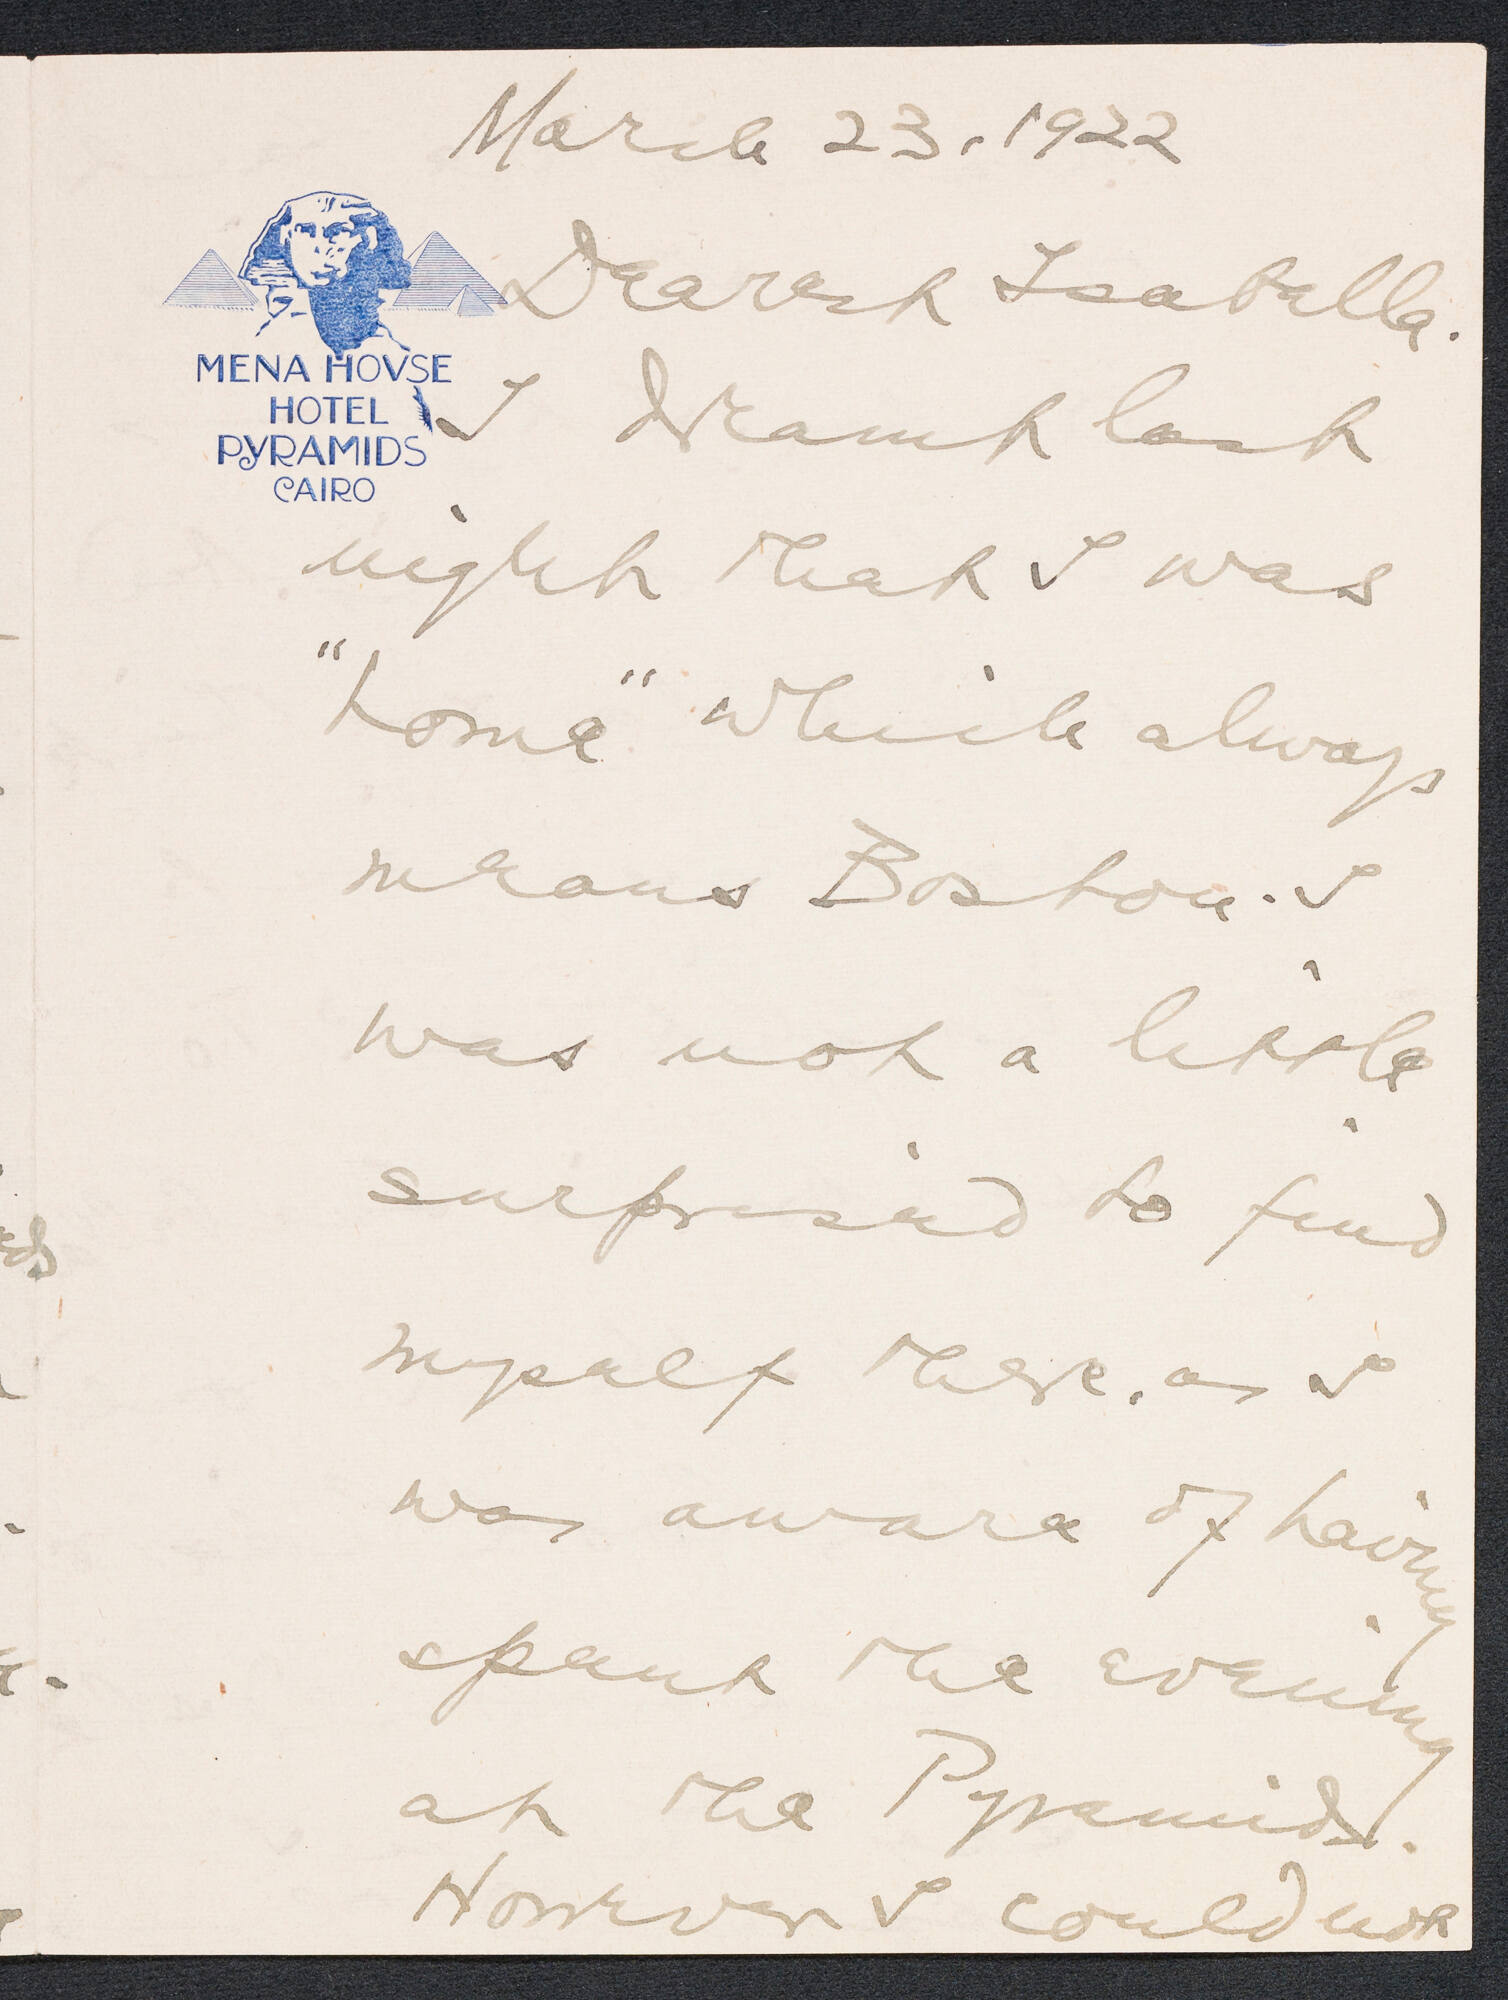 March 23. 1922
MENA HOVSE
HOTEL
PYRAMIDS
CAIRO
Dearest Isabella.
I dreamt last
night that I was
"home" which always
means Boston. I
was not a little
surprised to find
myself there, as I
was aware of having
spent the evening
at the Pyramids.
However I could not